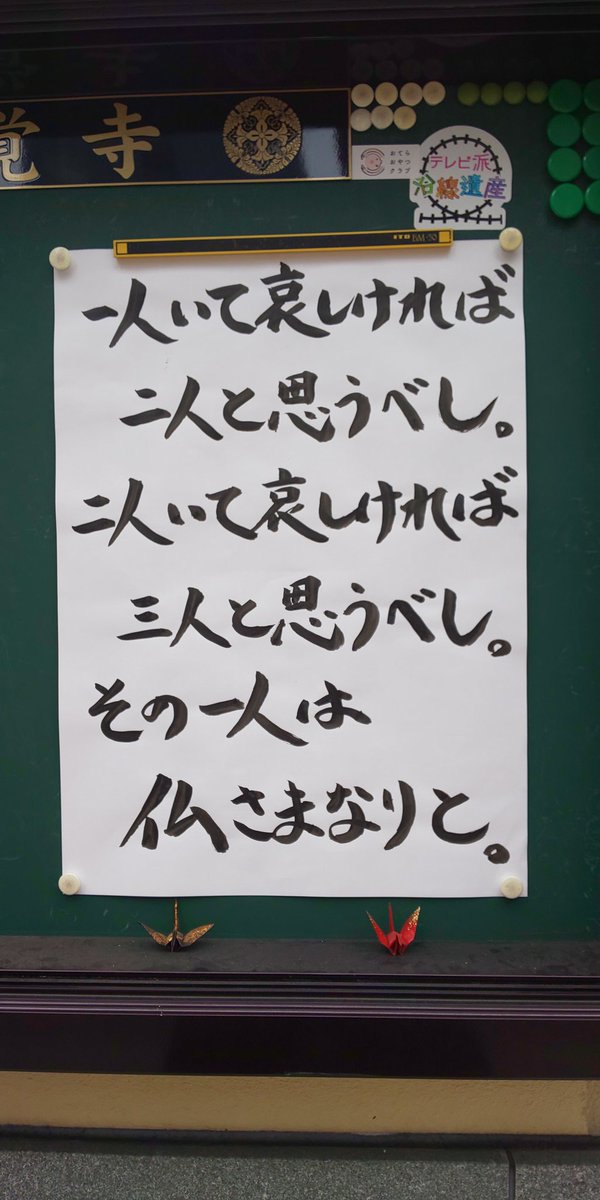 覚寺
おてら
おやつ
クラブ
テレビ派
沿線遺産
ITO BM-50
一人いて哀しければ
二人と思うべし。
二人いて哀しければ
三人と思うべし。
その一人は
仏さまなりと。